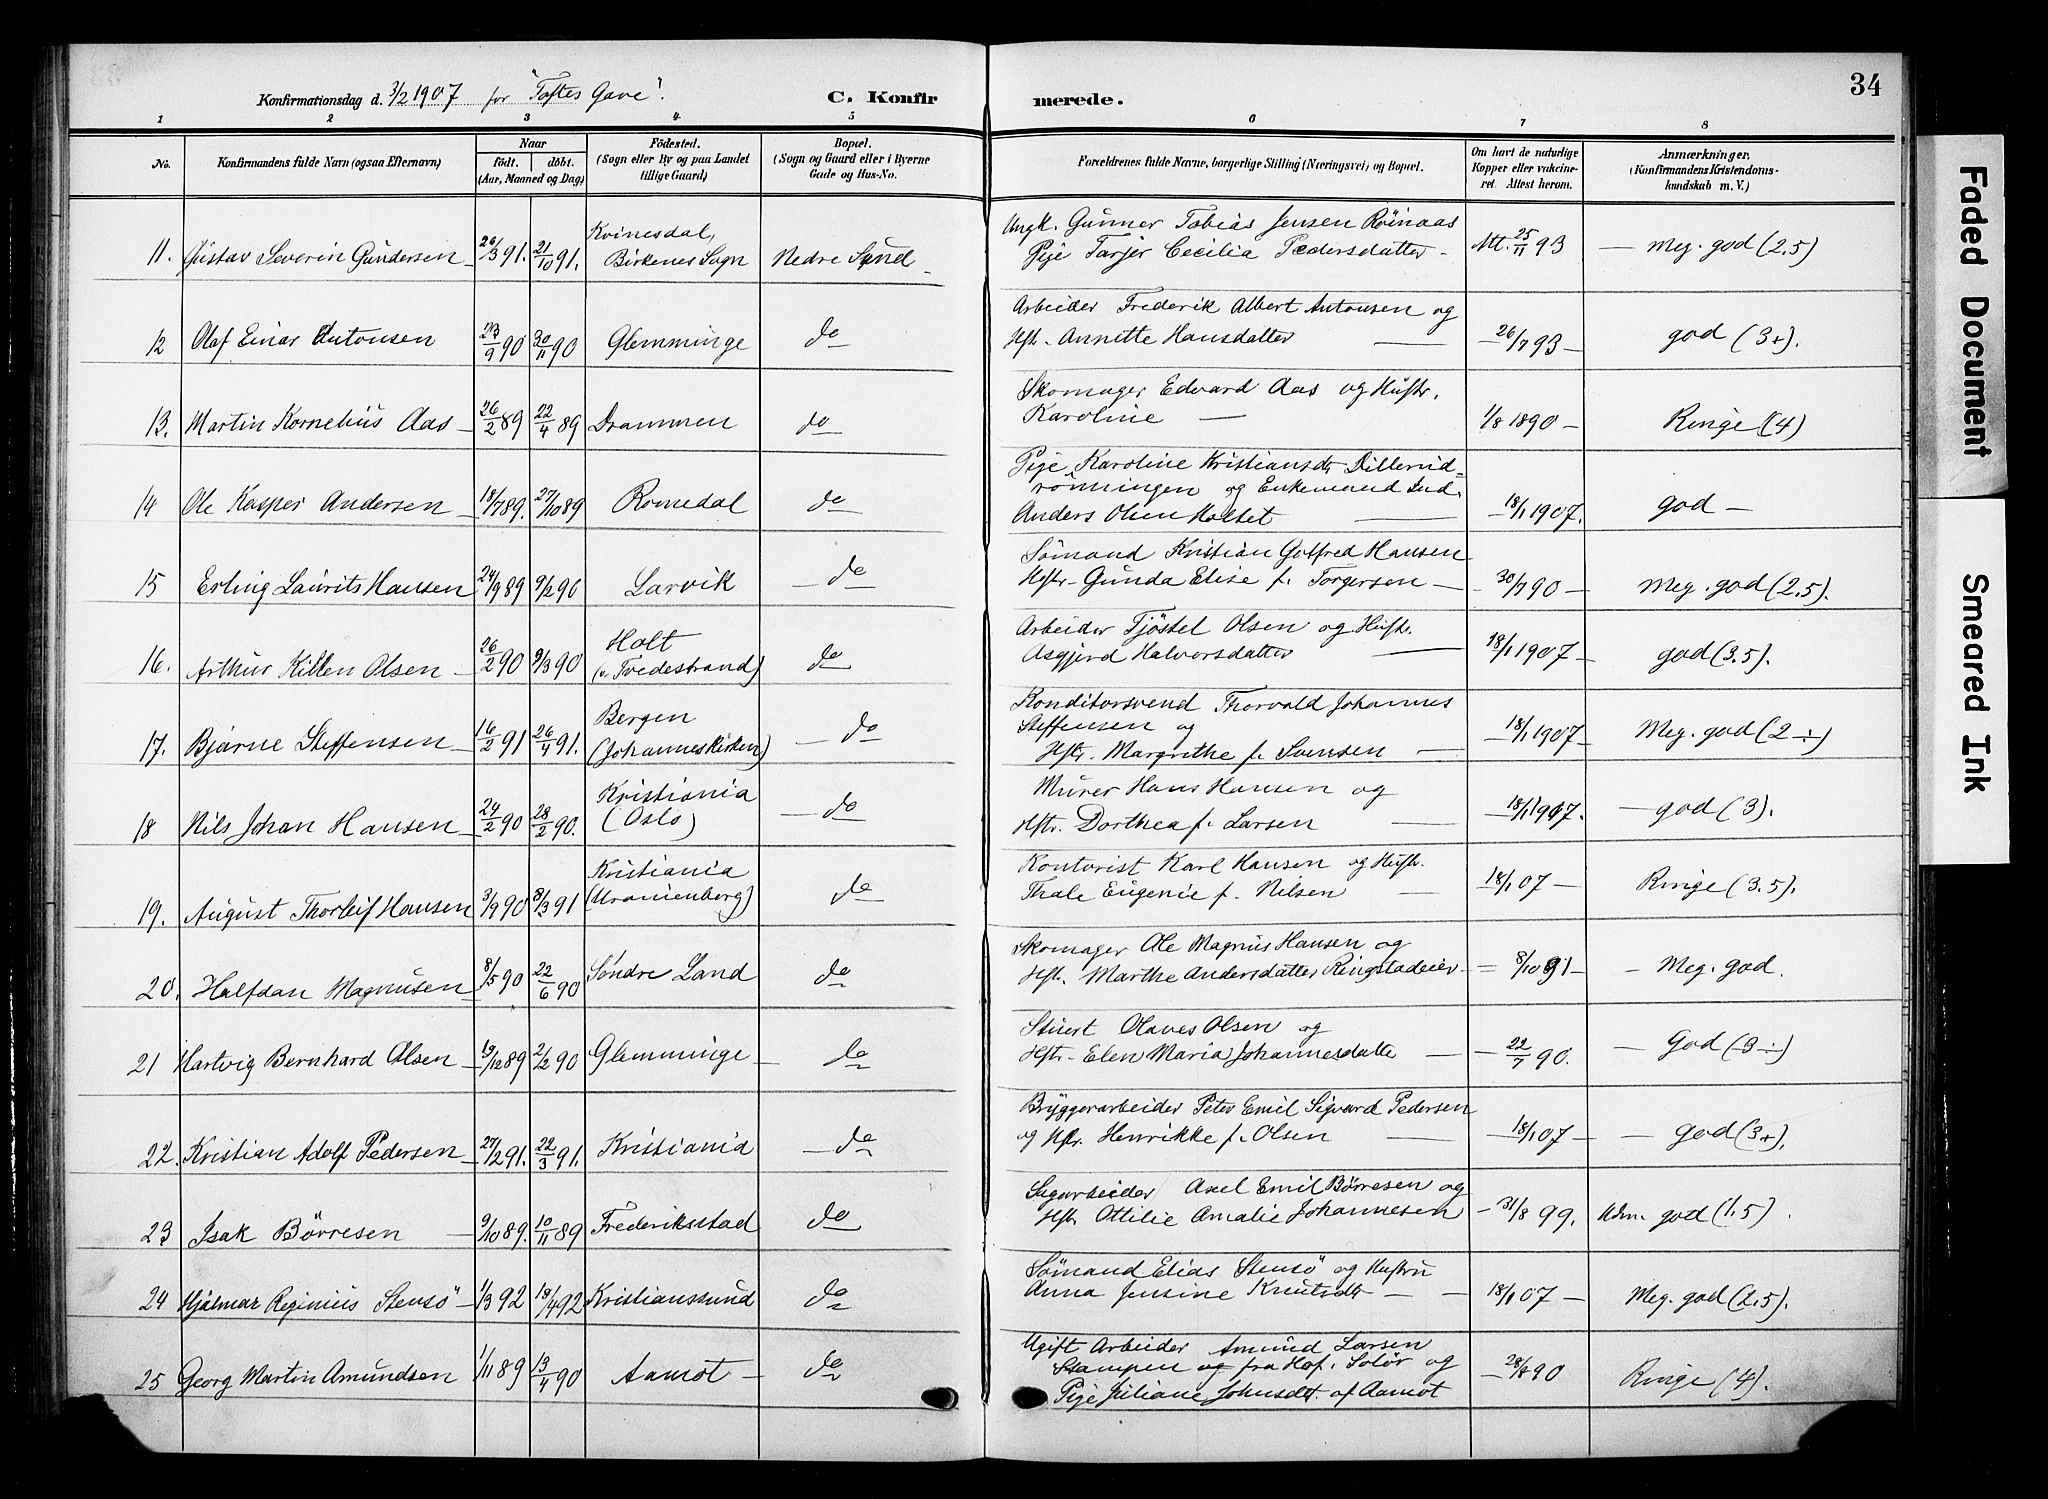 34
Konfirmationsdag d. 3/2 1907 for "Toftes Gave". C. Konfirmerede.
1 2 3 4 5 6 7 8
No. Konfirmandens fulde Navn (ogsaa Efternavn) Naar födt. döbt. (Aar, Maaned og Dag) Födested. (Sogn eller By og paa Landet tillige Gaard) Bopæl. (Sogn og Gaard eller i Byerne Gade og Hus-No. Forældrenes fulde Navne, borgerlige Stilling (Næringsvei) og Bopæl. Om havt de naturlige Kopper eller vakcineret. Attest herom. Anmærkninger. (Konfirmandens Kristendomskundskab m. V.)
11. Gustav Severin Gundersen 26/3 91. 21/10 91. Kvinesdal, Birkenes Sogn Nedre Sund Ungk. Gunner Tobias Jensen Röinaas Pige Tarjer Cecilia Pedersdatter Att. 25/11 93 Meg. god (2.5)
12 Olaf Einar Antonsen 23/9 90 30/11 90 Glemminge do Arbeider Frederik Albert Antonsen og Hst. Annette Hansdatter 26/7 93 god (3+).
13. Martin Kornelius Aas 26/2 89 22/4 89 Drammen do Skomager Edvard Aas og Hustr. Karoline 1/8 1890 Ringe (4)
14 Ole Kasper Andersen 18/7 89. 27/10 89 Romedal do Pige Karoline Kristiansdt. Dillerudrönningen og Enkemand Ind. Anders Olsen Holtet 18/1 1907. god
15 Erling Laurits Hansen 24/9 89 9/2 90 Larvik do Sömand Kristian Gotfred Hansen Hstr. Gunda Elise f. Torgersen 30/7 90 Meg. god (2.5).
16. Arthur Killen Olsen 26/2 90 9/3 90 Holt (v. Tvedestrand) do Arbeider Tjöstel Olsen og Hustr. Asgjerd Halvorsdatter 18/1 1907 god (3.5).
17. Bjarne Steffensen 16/2 91 26/4 91. Bergen (Johanneskirken) do Konditorsvend Thorvald Johannes Steffensen og Hstr. Margrethe f. Svensen 18/1 1907 Meg. god (2 ÷)
18 Nils Johan Hansen 24/2 90 28/2 90. Kristiania (Oslo) do Murer Hans Hansen og Hstr. Dorthea f. Larsen 18/1 1907. god (3).
19. August Thorleif Hansen 3/9 90 8/3 91 Kristiania (Uranienborg) do Kontorist Karl Hansen og Hustr. Thale Eugenie f. Nilsen 18/1 07 Ringe (3.5).
20. Halfdan Magnusen 8/5 90 22/6 90 Söndre Land do Skomager Ole Magnus Hansen og Hst. Marthe Andersdatter Ringstadeier 8/10 91 Meg. god.
21 Hartvig Bernhard Olsen 19/12 89 2/2 90 Glemminge do Stuert Olaves Olsen og Hstr. Elen Maria Johannesdatte 22/7 90. God (3 ÷)
22. Kristian Adolf Pedersen 27/2 91. 22/3 91. Kristiania do Bryggerarbeider Peter Emil Sigvard Pedersen og Hstr. Henrikke f. Olsen 18/1 07 god (3+).
23 Isak Börresen 9/10 89. 10/11 89 Frederiksstad do Sagarbeider Axel Emil Börresen og Hstr Ottilie Amalie Johannesen 31/8 99. Udm. god (1.5).
24 Hjalmar Reginius Stensö 1/3 92 18/4 92 Kristianssund do Sömand Elias Stensö og Hustru Anna Jensine Knutsdt. 18/1 07 Meg. god (2.5).
25 Georg Martin Amundsen 1/11 89 13/4 90 Aamot do Ugift Arbeider Amund Larsen Stampen og fra Hof. Solör og Pige Juliane Johnsdt. af Aamot 28/8 90 Ringe (4).
Faded Document
Smeared Ink